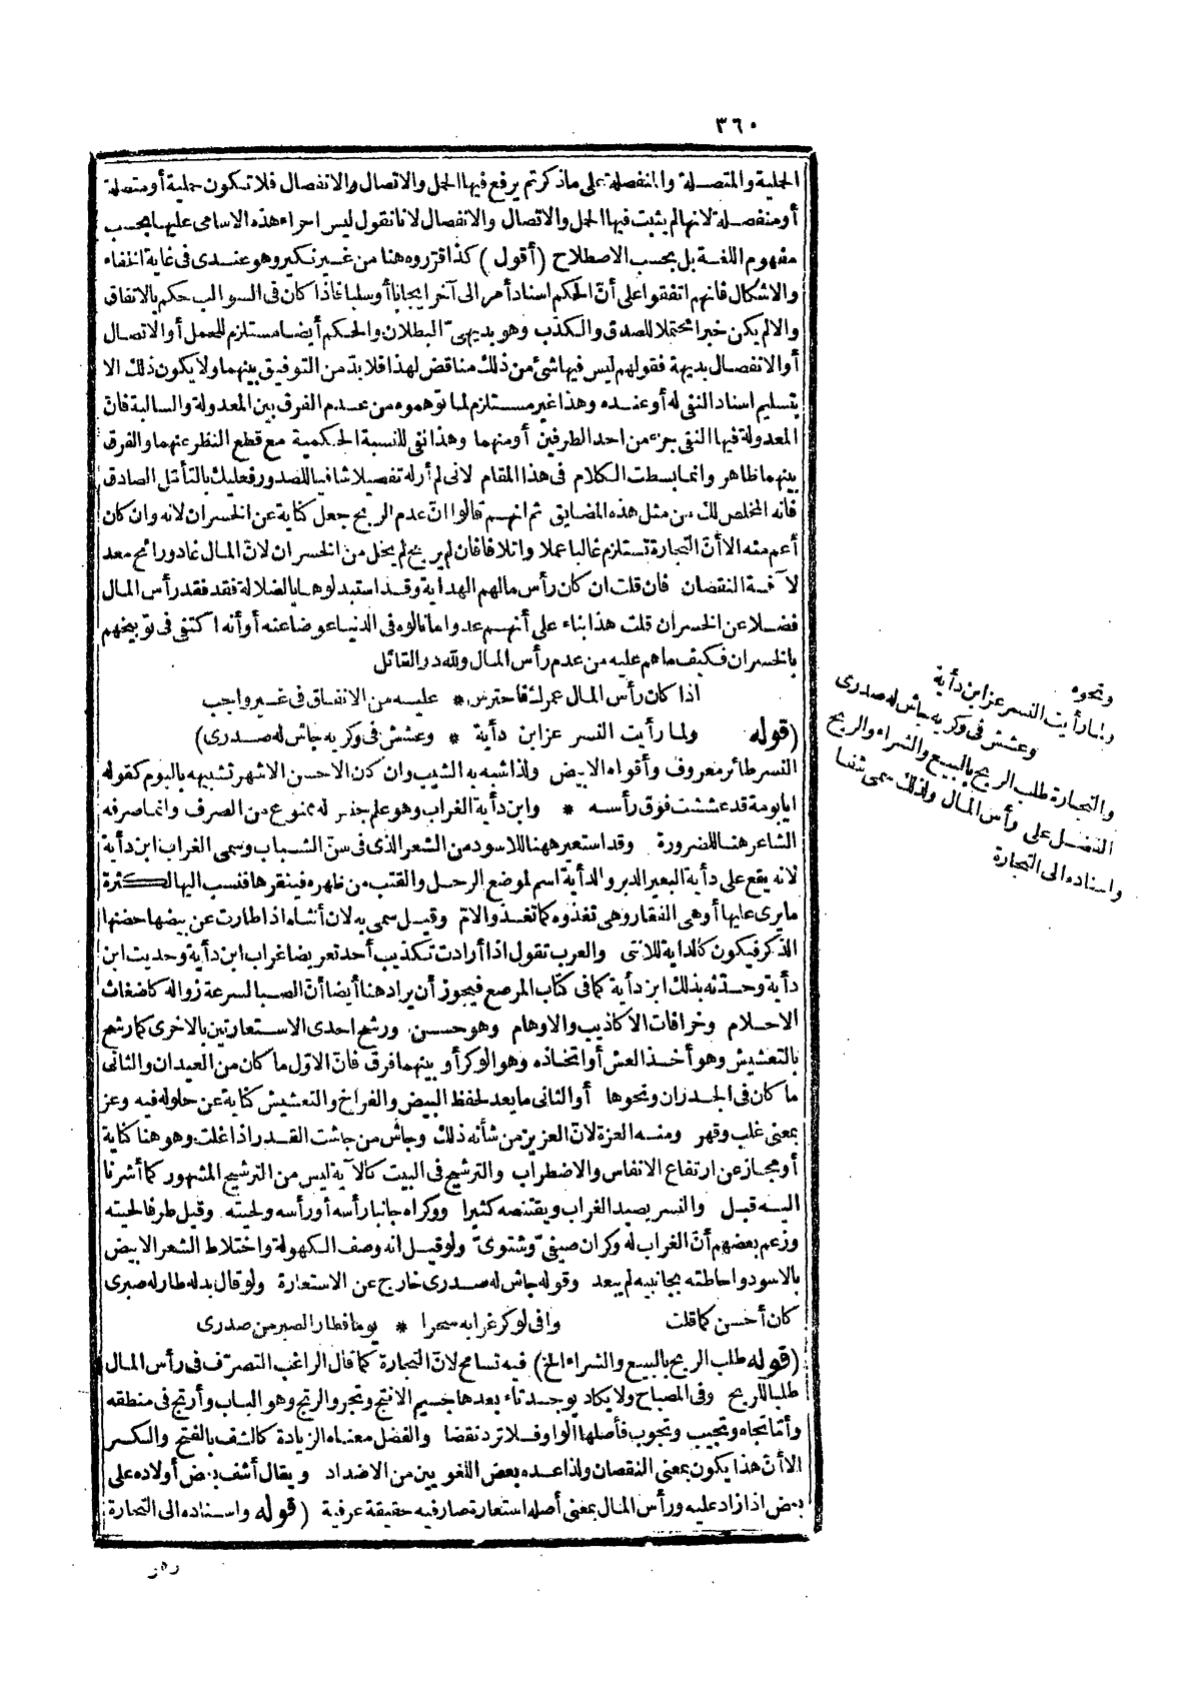 ٣٦٠
الحملية والمتصلة والمنفصلة على ماذكرتم يرفع فيها الحمل والاتصال والانفصال فلا تكون حملية أومتصلة
أومنفصلة لانها لم يثبت فيها الحمل والاتصال والانفصال لانا نقول ليس اجراء هذه الاسامى عليها بحسب
مفهوم اللغة بل بحسب الاصطلاح (أقول) كذا قرروه هنا من غير نكير وهو عندى فى غاية الخفاء
والاشكال فانهم اتفقوا على أنّ الحكم اسناد أمر الى آخر ايجابا أوسلبا فاذا كان فى السوالب حكم بالاتفاق
والا لم يكن خبرا محتملا للصدق والكذب وهو بديهىّ البطلان والحكم أيضا مستلزم للحمل أوالاتصال
أوالانفصال بديهة فقولهم ليس فيها شئ من ذلك مناقض لهذا فلابدّ من التوفيق بينهما ولا يكون ذلك الا
بتسليم اسناد النفى له أوعنده وهذا غير مستلزم لما توهموه من عدم الفرق بين المعدولة والسالبة فانّ
المعدولة فيها النفى جزء من احد الطرفين أومنهما وهذا نفى للنسبة الحكمية مع قطع النظر عنهما والفرق
بينهما ظاهر وانما بسطت الكلام فى هذا المقام لانى لم أر له تفصيلا شافيا للصدور فعليك بالتأمّل الصادق
فانه المخلص لك من مثل هذه المضايق ثم انهم قالوا انّ عدم الربح جعل كناية عن الخسران لانه وان كان
أعم منه الا أنّ التجارة تستلزم غالبا عملا واتلافا فان لم يربح لم يخل من الخسران لانّ المال غاد ورائح معد
لآفة النقصان فان قلت ان كان رأس مالهم الهداية وقد استبدلوها بالضلالة فقد فقد رأس المال
فضلا عن الخسران قلت هذا بناء على أنهم عدوا ما نالوه فى الدنيا عوضا عنه أوأنه اكتفى فى توبيخهم
بالخسران فكيف ما هم عليه من عدم رأس المال ولله در القائل
اذا كان رأس المال عمرك فاحترس * عليه من الانفاق فى غير واجب
(قوله ولما رأيت النسر عز ابن دأية * وعشش فى وكريه جاش له صدرى)
النسر طائر معروف وأقواه الابيض ولذا شبه به الشيب وان كان الاحسن الاشهر تشبيهه بالبوم كقوله
ايابومة قد عششت فوق رأسه * وابن دأية الغراب وهو علم جنس له ممنوع من الصرف وانما صرفه
الشاعر هنا للضرورة وقد استعير ههنا للاسود من الشعر الذى فى سنّ الشباب وسمى الغراب ابن دأية
لانه يقع على دأية البعير الدبر والدأية اسم لموضع الرحل والقتب من ظهره فينقرها فنسب اليها لكثرة
ما يرى عليها أوهى الفقار وهى تغذوه كما تغذو الامّ وقيل سمى به لان أنثاه اذا طارت عن بيضها حضنها
الذكر فيكون كالداية للانثى والعرب تقول اذا أرادت تكذيب أحد تعريضا غراب ابن دأية وحديث ابن
دأية وحدّثه بذلك ابن دأية كما فى كتاب المرصع فيجوز أن يراد هنا أيضا أنّ الصبا لسرعة زواله كاضغاث
الاحلام وخرافات الاكاذيب والاوهام وهو حسن ورشح احدى الاستعارتين بالاخرى كما رشح
بالتعشيش وهو أخذ العش أواتخاذه وهو الوكر أو بينهما فرق فانّ الاوّل ما كان من العيدان والثانى
ما كان فى الجدران ونحوها أوالثانى ما يعد لحفظ البيض والفراخ والتعشيش كناية عن حلوله فيه وعز
بمعنى غلب وقهر ومنه العزة لانّ العزيز من شأنه ذلك وجاش من جاشت القدر اذا غلت وهو هنا كناية
أومجاز عن ارتفاع الانفاس والاضطراب والترشيح فى البيت كالآية ليس من الترشيح المشهور كما أشرنا
اليه قبل والنسر يصيد الغراب ويقتنصه كثيرا ووكراه جانبا رأسه أورأسه ولحيته وقيل طرفا لحيته
وزعم بعضهم أنّ الغراب له وكران صيفىّ وشتوىّ ولو قيل انه وصف الكهولة واختلاط الشعر الابيض
بالاسود واحاطته بجانبيه لم يبعد وقوله جاش له صدرى خارج عن الاستعارة ولو قال بدله طار له صبرى
كان أحسن كما قلت وافى لوكر غرابه سحرا * يوما فطار الصبر من صدرى
(قوله طلب الربح بالبيع والشراء الخ) فيه تسامح لانّ التجارة كما قال الراغب التصرّف فى رأس المال
طلبا للربح وفى المصباح ولا يكاد يوجد تاء بعدها جيم الا نتج وتجر والرتج وهو الباب وأرتج فى منطقه
وأمّا تجاه وتجيب وتجوب فأصلها الواو فلا ترد نقضا والفضل معناه الزيادة كالشف بالفتح والكسر
الا أنّ هذا يكون بمعنى النقصان ولذا عده بعض اللغويين من الاضداد ويقال أشف بعض أولاده على
بعض اذا زاد عليه ورأس المال بمعنى أصله استعارة صارفيه حقيقة عرفية (قوله واسناده الى التجارة
ونحوه
ولما رأيت النسر عز ابن دأية
وعشش فى وكريه جاش له صدرى
والتجارة طلب الربح بالبيع والشراء والربح
الفضل على رأس المال ولذلك سمى شفا
واسناده الى التجارة